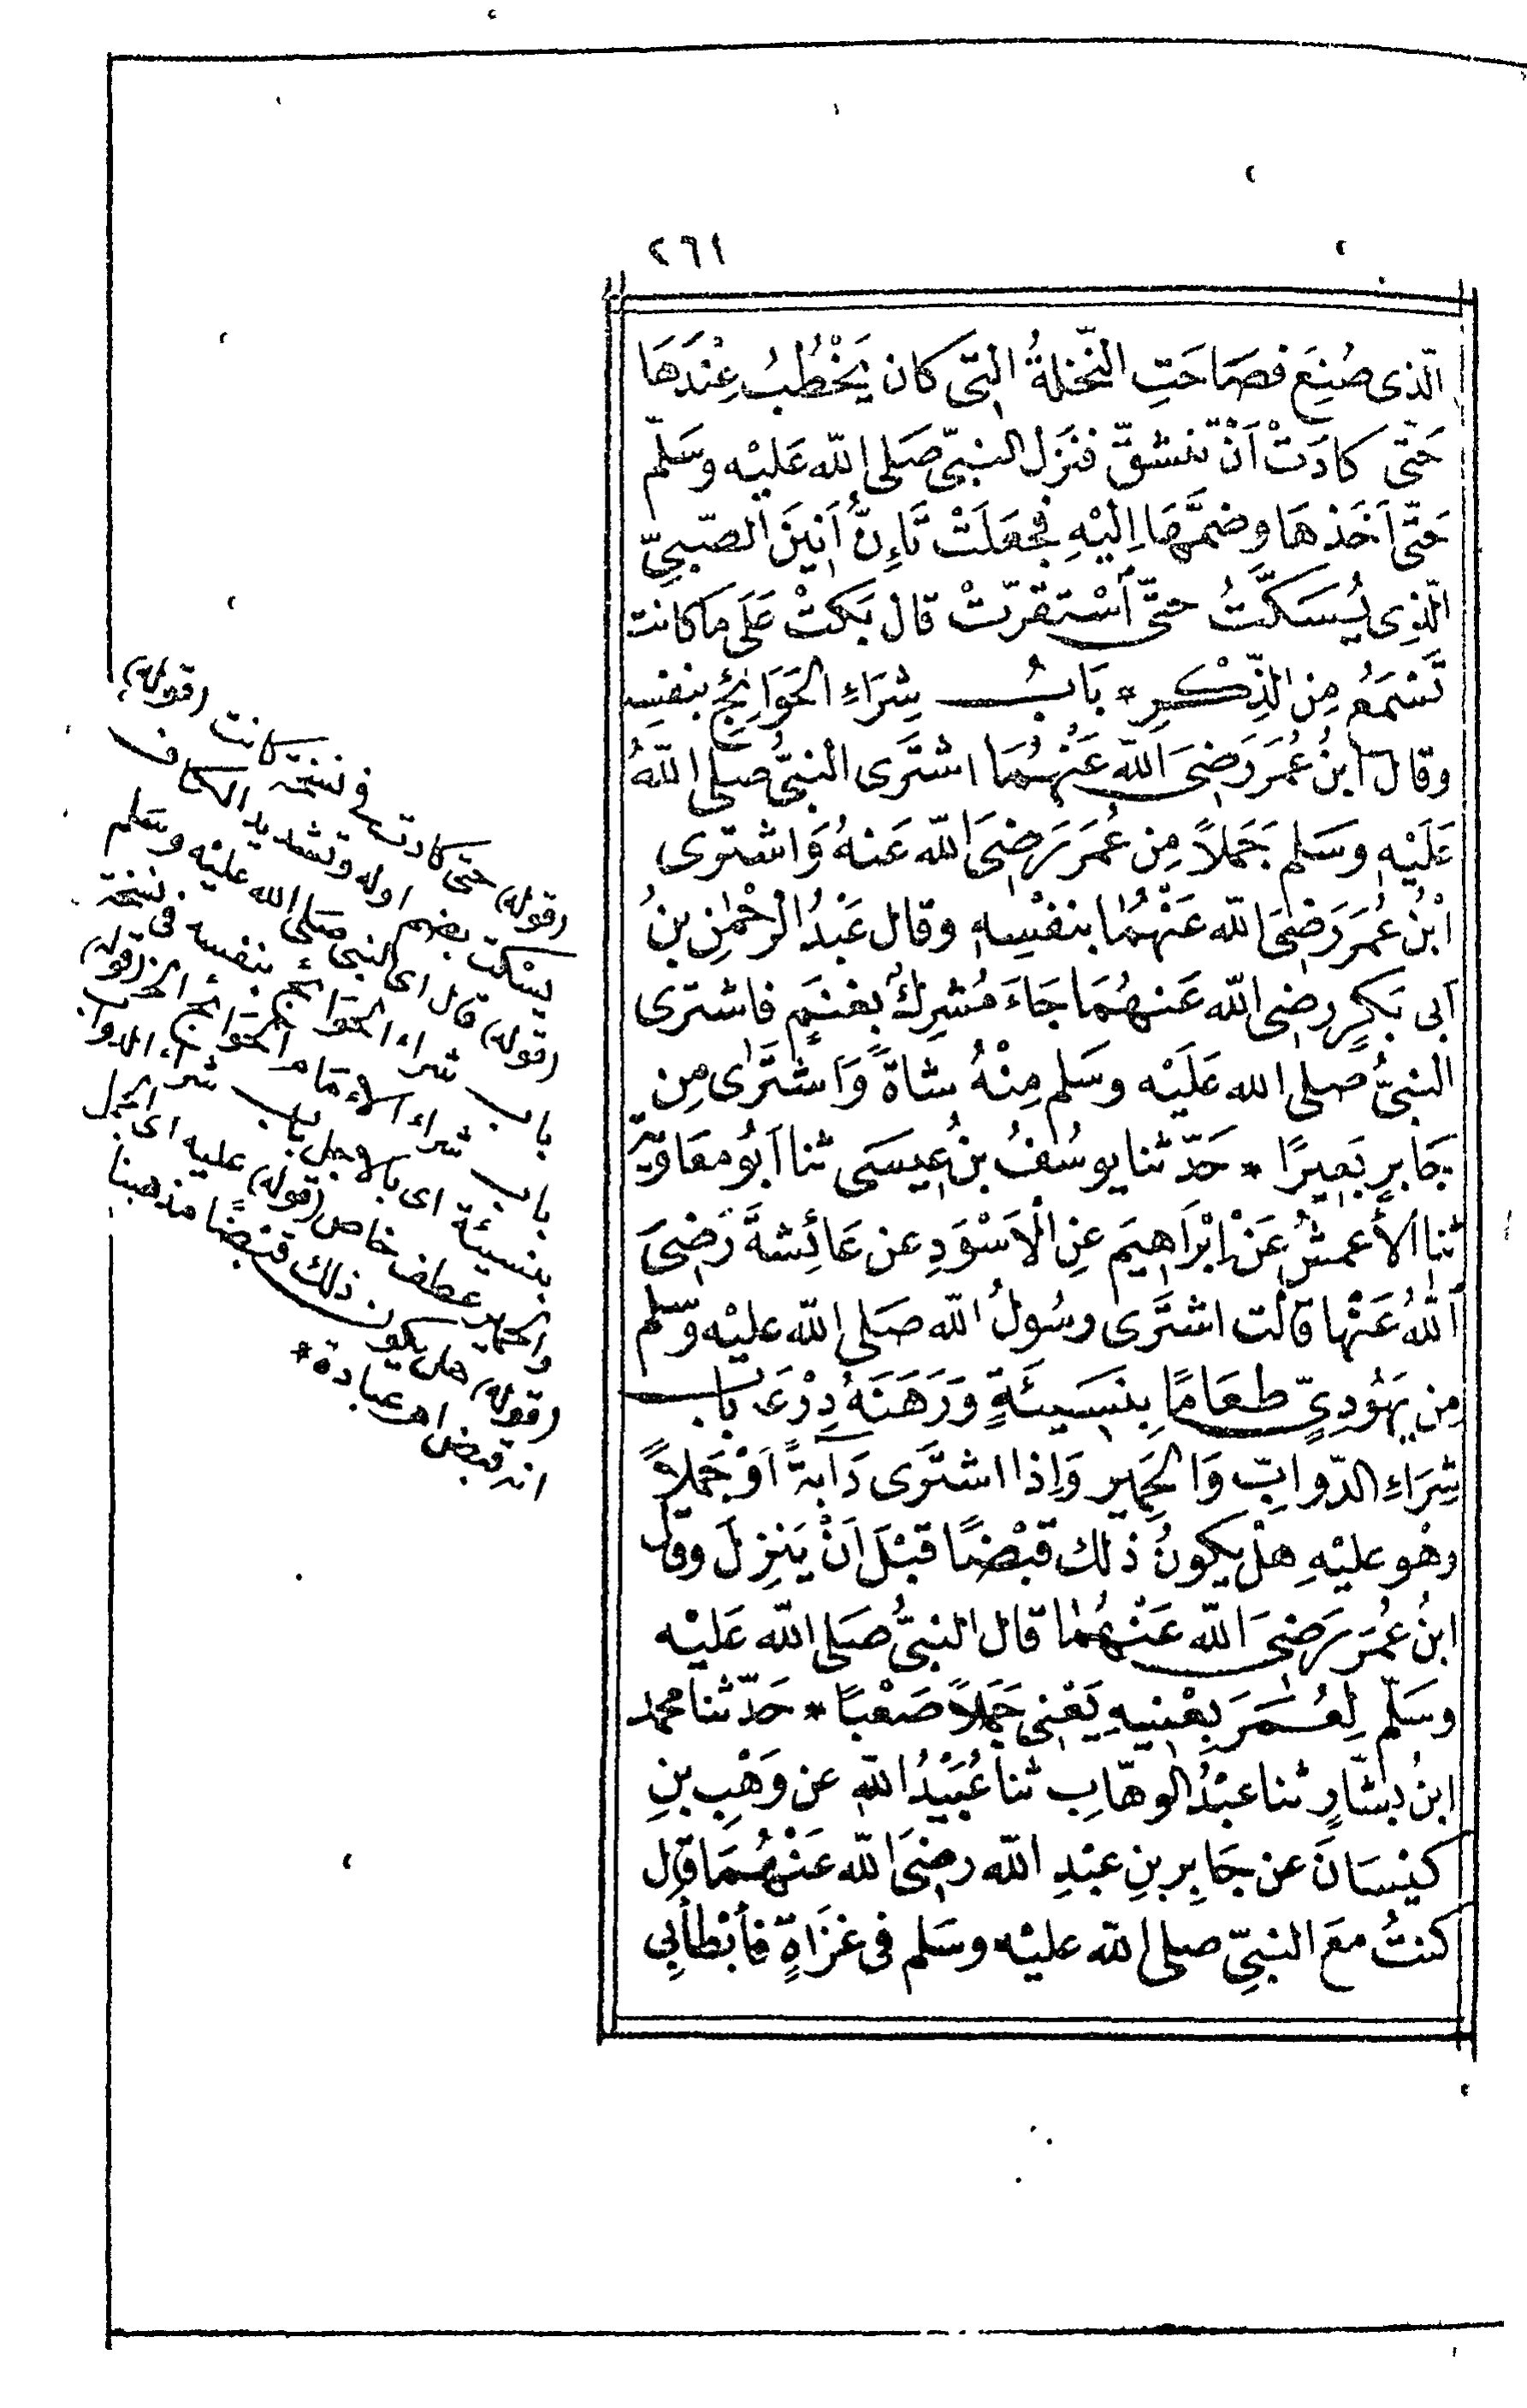 ٢٦١
الّذى صُنِعَ فصَاحَتِ النّخلةُ الّتى كان يَخْطُبُ عِنْدَهَا
حَتّى كادَتْ اَنْ تنشقّ فنَزَل النبىّ صَلى الله عَليْه وسَلّم
حَتّى اَخَذهَا وضمَّهَا اِليْهِ فجعَلَتْ تَاءِنُّ اَنِينَ الصّبىِّ
الّذِى يُسَكَّتُ حتّى اَسْتقرّتْ قال بَكتْ عَلَى مَا كانت
تَسْمَعُ مِن الذِّكْرِ * بَابُ شِرَاءِ الحَوَائِجِ بنفسِه
وقال ابنُ عُمَرَ رَضِىَ الله عَنْهُمَا اشتَرى النبىُّ صَلى اللهُ
عَلَيْهِ وسَلم جَمَلاً مِن عُمَرَ رَضِىَ الله عَنهُ وَاشترى
اْبْنُ عُمَرَ رَضِىَ الله عَنْهُمَا بنفْسِهِ وقال عَبْدُ الرحْمٰنِ بنُ
اَبى بَكرٍ رضِى الله عَنهُمَا جَاءَ مُشرِكٌ بغنَمٍ فاشترى
النبىُّ صلى الله عَلَيْه وسَلم مِنْهُ شاةً وَاشتَرٰى مِن
جَابرٍ بَعِيرًا * حَدّثنا يوسُفُ بنُ عِيسَى ثنا اَبُو معَاوِيَة
ثنا الأعمشُ عَنْ اِبْرَاهِيمَ عنِ الْاَسْوَدِ عن عَائِشةَ رَضِىَ
اَللهُ عَنْها قالت اشتَرى رسُولُ الله صَلى الله عليْه وَسّلم
مِن يهَوُدِىٍّ طعَامًا بِنَسِيئَةٍ وَرَهَنَهُ دِرْعَهُ باب
شِرَاءِ الدّوابِّ وَالحَمِير وَاِذا اشتَرى دَآبةً اَوْ جَملاً
وهُو عليْهِ هلْ يكونُ ذلك قبْضًا قبْلَ اَنْ يَنزِلَ وقال
ابنُ عُمَرَ رَضِىَ الله عَنْهُمَا قال النبىُّ صَلى الله عَليْه
وسَلّم لِعُمَرَ بِعْنِيهِ يَعْنِى جَمَلاً صَعْبًا * حَدّثنا محمد
ابنُ بشّارٍ ثنا عبْدُ الوهّابِ ثنا عُبَيْدُ اللهِ عن وَهْبِ بنِ
كيْسَانَ عن جَابِرِ بنِ عبْدِ الله رضِىَ الله عَنْهُمَا قال
كنتُ معَ النبىِّ صلى الله عليْه وسَلم فى غزَاةٍ فأبْطأبِى
(قوله) حتى كادت فى نسخة كانت (قوله)
يسْكت بضم اوله وتشديد الكاف
(قوله) قال اى النبى صَلى الله عليْه وسَلم
باب شراء الحوائج بنفسه فى نسخة
باب شراء الامَام الحوائج الخ (قوله)
بنسيئة اى بالاجل باب شراء الدواب
والحمير عطف خاص (قوله) عليه اى الجمل
(قوله) هل يكون ذلك قبْضًا مذهبنا
انه قبض اهـ عبادة *